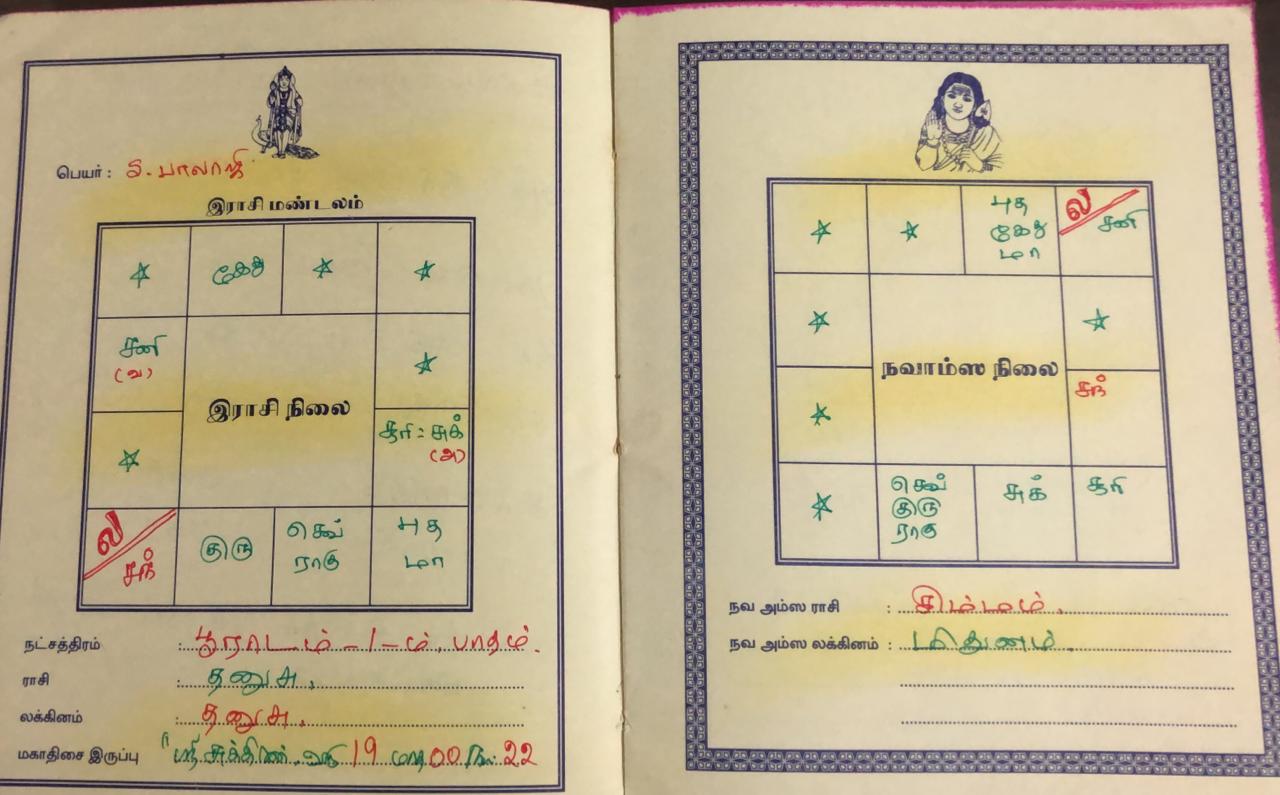 பெயர் : S. பாலாஜி
இராசி மண்டலம்
கேது
சனி
(வ)
இராசி நிலை
சூரி : சுக்
(அ)
ல
சந்
குரு
செவ்
ராகு
புத
மா
நட்சத்திரம் : பூராடம் - 1 - ம். பாதம்.
ராசி : தனுசு.
லக்கினம் : தனுசு.
மகாதிசை இருப்பு : ஸ்ரீ சுக்கிரன். 19 00 22
புத
கேது
மா
ல
சனி
நவாம்ஸ நிலை
சந்
செவ்
குரு
ராகு
சுக்
சூரி
நவ அம்ஸ ராசி : சிம்மம்.
நவ அம்ஸ லக்கினம் : மிதுனம்.